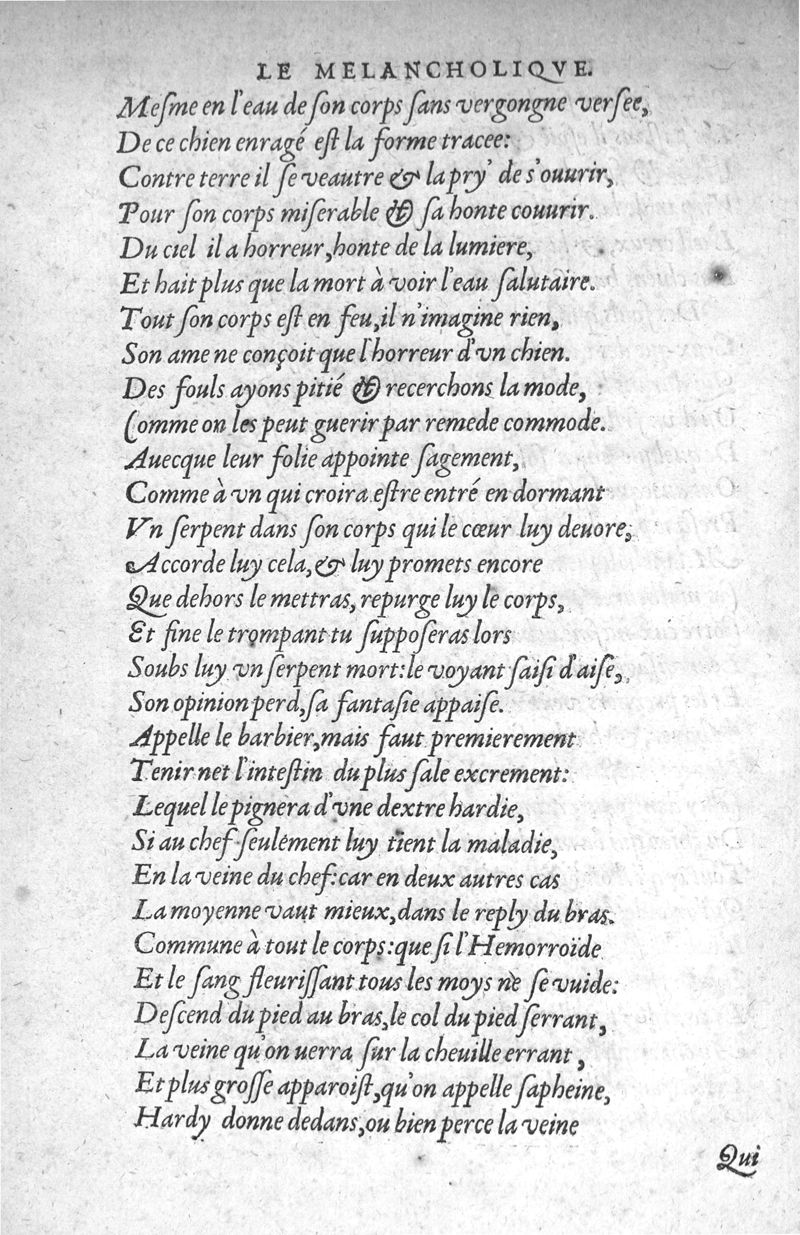 LE MELANCHOLIQVE.
Meſme en l'eau de ſon corps ſans vergongne verſee,
De ce chien enragé eſt la forme tracee:
Contre terre il ſe veautre & la pry' de s'ouurir,
Pour ſon corps miſerable & ſa honte couurir.
Du ciel il a horreur, honte de la lumiere,
Et hait plus que la mort à voir l'eau ſalutaire.
Tout ſon corps eſt en feu, il n'imagine rien,
Son ame ne conçoit que l'horreur d'vn chien.
Des fouls ayons pitié & recerchons la mode,
Comme on les peut guerir par remede commode.
Auecque leur folie appointe ſagement,
Comme à vn qui croira eſtre entré en dormant
Vn ſerpent dans ſon corps qui le cœur luy deuore,
Accorde luy cela, & luy promets encore
Que dehors le mettras, repurge luy le corps,
Et fine le trompant tu ſuppoſeras lors
Soubs luy vn ſerpent mort: le voyant ſaiſi d'aiſe,
Son opinion perd, ſa fantaſie appaiſe.
Appelle le barbier, mais faut premierement
Tenir net l'inteſtin du plus ſale excrement:
Lequel le pignera d'vne dextre hardie,
Si au chef ſeulement luy tient la maladie,
En la veine du chef: car en deux autres cas
La moyenne vaut mieux, dans le reply du bras.
Commune à tout le corps: que ſi l'Hemorroïde
Et le ſang fleuriſſant tous les moys ne ſe vuide:
Deſcend du pied au bras, le col du pied ſerrant,
La veine qu'on uerra ſur la cheuille errant,
Et plus groſſe apparoiſt, qu'on appelle ſapheine,
Hardy donne dedans, ou bien perce la veine
Qui